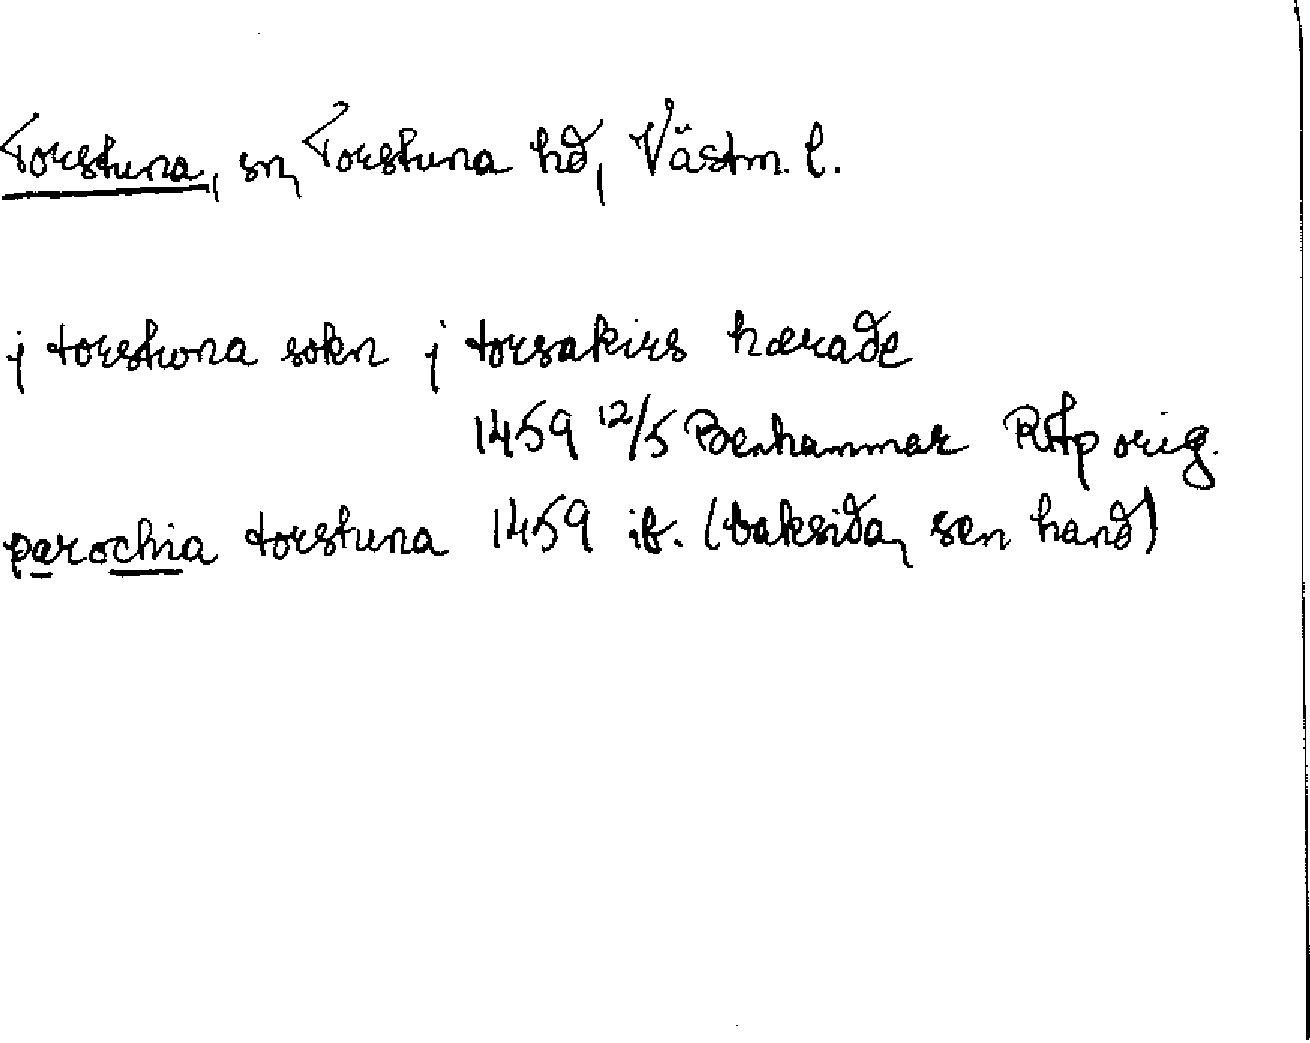 Torstuna, sn, Torstuna hd, Västm. l.
j torstwna sokn j torsakirs hærade
1459 12/5 Benhammar RAp orig.
parochia torstuna 1459 ib. (baksida, sen hand)